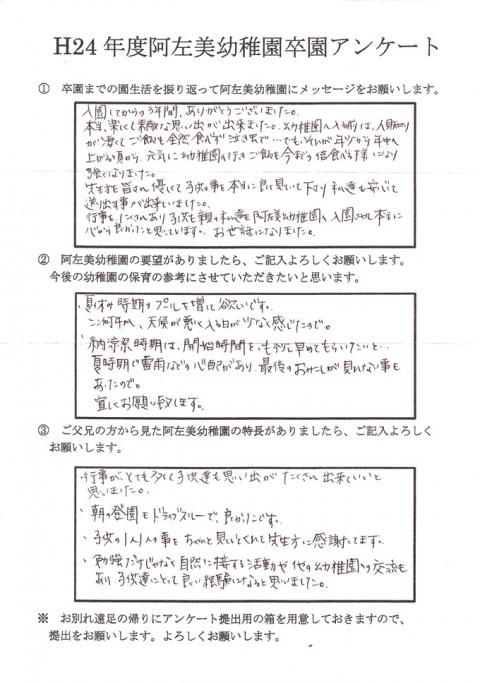 H24年度阿左美幼稚園卒園アンケート
① 卒園までの園生活を振り返って阿左美幼稚園にメッセージをお願いします。
入園してからの3年間、ありがとうございました。
本当、楽しくて素敵な思い出が出来ました。幼稚園へ入る前は、人見知り
が凄くて ご飯も全然食べず 泣き虫で…でも、それが年少から年中へ
上がる頃から、元気に幼稚園へ行き ご飯も今までの倍食べる様になり
強くなりました。
先生も皆さん優しくて 子供の事を本当に良く見ていて下さり 私達も安心して
送り出す事が出来ました。
行事もたくさんあり 子供も親の私達も 阿左美幼稚園へ入園させて本当に
心から良かったと思っています。お世話になりました。
② 阿左美幼稚園の要望がありましたら、ご記入よろしくお願いします。
今後の幼稚園の保育の参考にさせていただきたいと思います。
・夏休み時期のプールを増して欲しいです。
ここ何年か、天候が悪く入る日が少なく感じたので。
・納涼祭時期は、開始時間をもう少し早めてもらいたいと…
夏時期で雷雨などの心配があり、最後のおみこしが見れない事も
あったので。
宜しくお願い致します。
③ ご父兄の方から見た阿左美幼稚園の特長がありましたら、ご記入よろしく
お願いします。
・行事が、とても多くて子供達も思い出がたくさん出来ていいと
思いました。
・朝の登園もドライブスルーで、良かったです。
・子供の1人1人の事をちゃんと見ていてくれて先生方に感謝してます。
・勉強だけじゃなく自然に接する活動や他の幼稚園との交流も
あり、子供達にとって良い経験になると思いました。
※ お別れ遠足の帰りにアンケート提出用の箱を用意しておきますので、
提出をお願いします。よろしくお願いします。